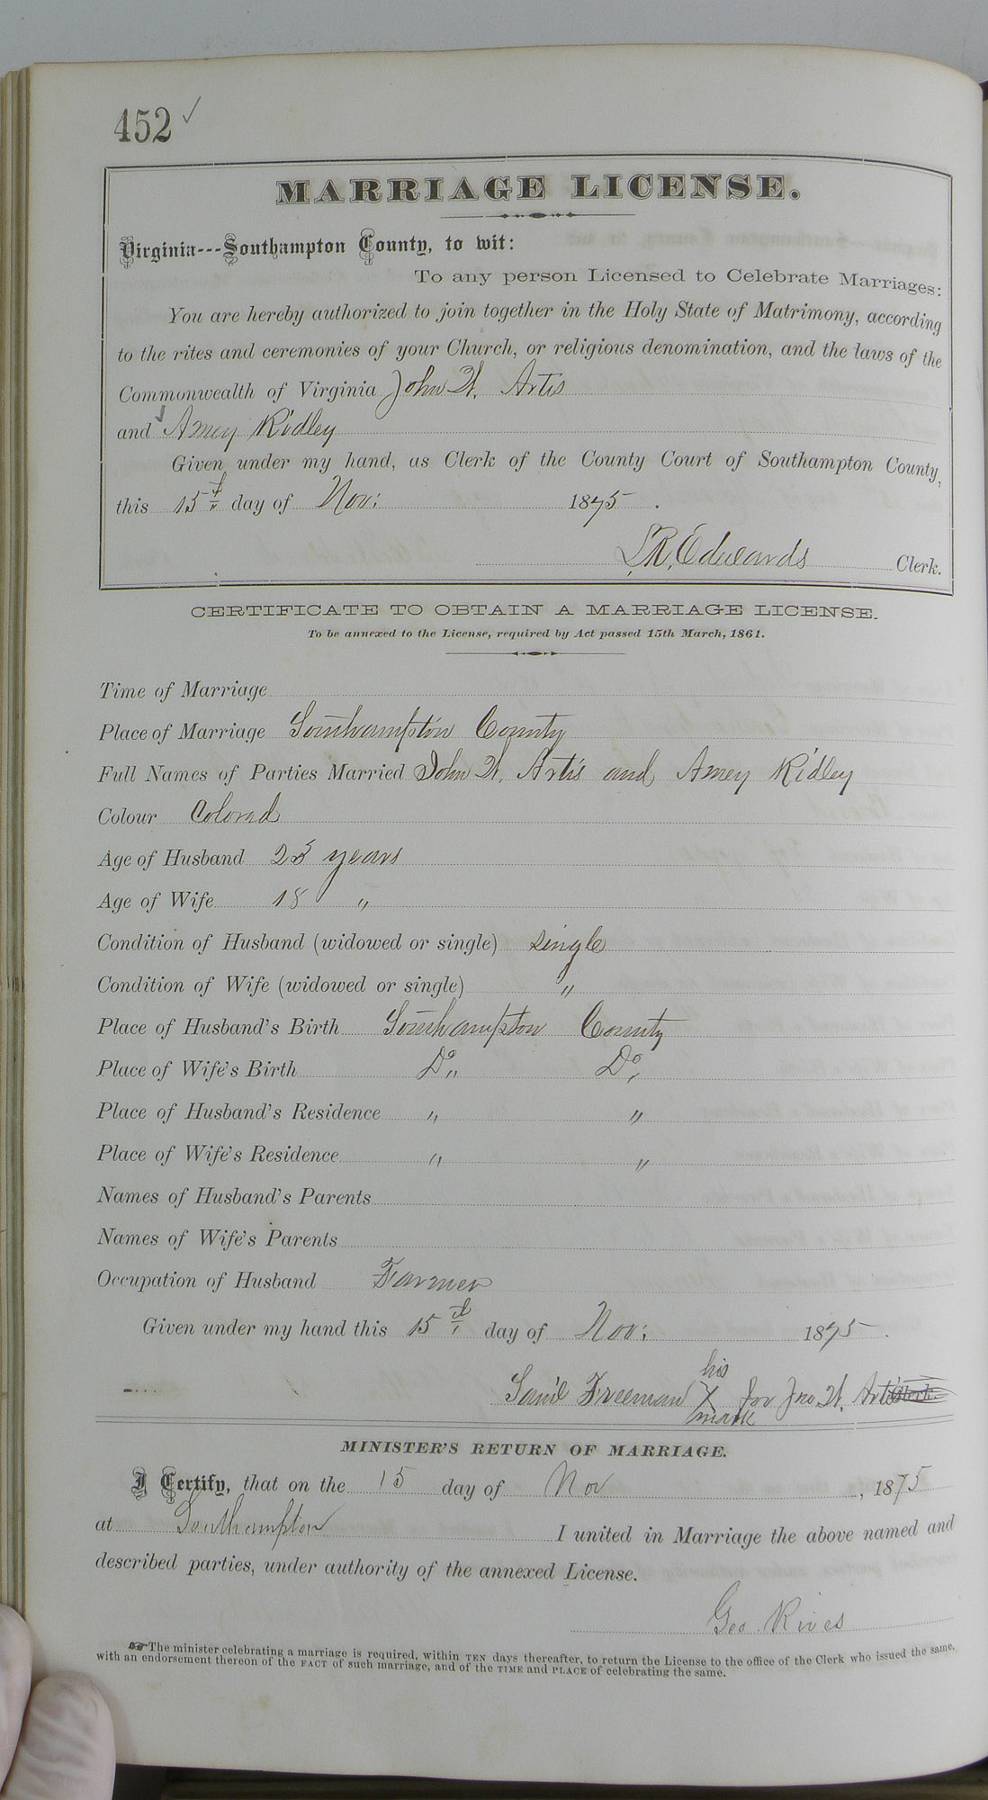 452 ✓
MARRIAGE LICENSE.
Virginia---Southampton County, to wit:
To any person Licensed to Celebrate Marriages:
You are hereby authorized to join together in the Holy State of Matrimony, according
to the rites and ceremonies of your Church, or religious denomination, and the laws of the
Commonwealth of Virginia John W. Artis
and Amey Ridley
Given under my hand, as Clerk of the County Court of Southampton County,
this 15th day of Nov: 1875.
L.R. Edwards Clerk.
CERTIFICATE TO OBTAIN A MARRIAGE LICENSE.
To be annexed to the License, required by Act passed 15th March, 1861.
Time of Marriage
Place of Marriage Southampton County
Full Names of Parties Married John W. Artis and Amey Ridley
Colour Colored
Age of Husband 23 years
Age of Wife 18 "
Condition of Husband (widowed or single) single
Condition of Wife (widowed or single) "
Place of Husband's Birth Southampton County
Place of Wife's Birth Do " Do "
Place of Husband's Residence " "
Place of Wife's Residence " "
Names of Husband's Parents
Names of Wife's Parents
Occupation of Husband Farmer
Given under my hand this 15th day of Nov: 1875.
his
Sam'l Freeman X for Jno. W. Artis Clerk.
mark
MINISTER'S RETURN OF MARRIAGE.
I Certify, that on the 15 day of Nov, 1875
at Southampton I united in Marriage the above named and
described parties, under authority of the annexed License.
Geo. Rives
The minister celebrating a marriage is required, within TEN days thereafter, to return the License to the office of the Clerk who issued the same,
with an endorsement thereon of the FACT of such marriage, and of the TIME and PLACE of celebrating the same.